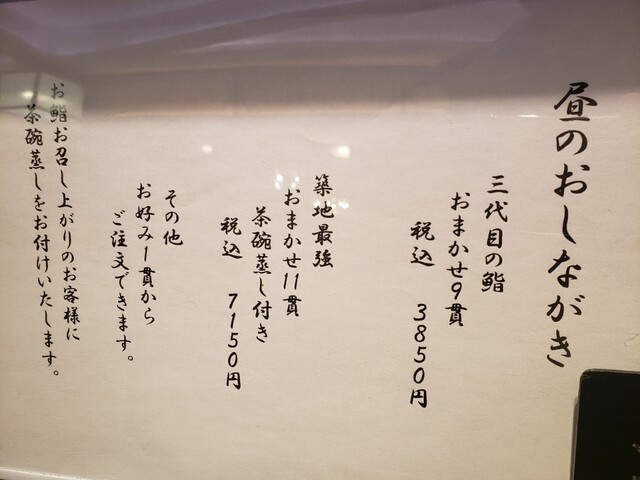 昼のおしながき
三代目の鮨
おまかせ9貫
税込 3850円
築地最強
おまかせ11貫
茶碗蒸し付き
税込 7150円
その他
お好み1貫から
ご注文できます。
お鮨お召し上がりのお客様に
茶碗蒸しをお付けいたします。